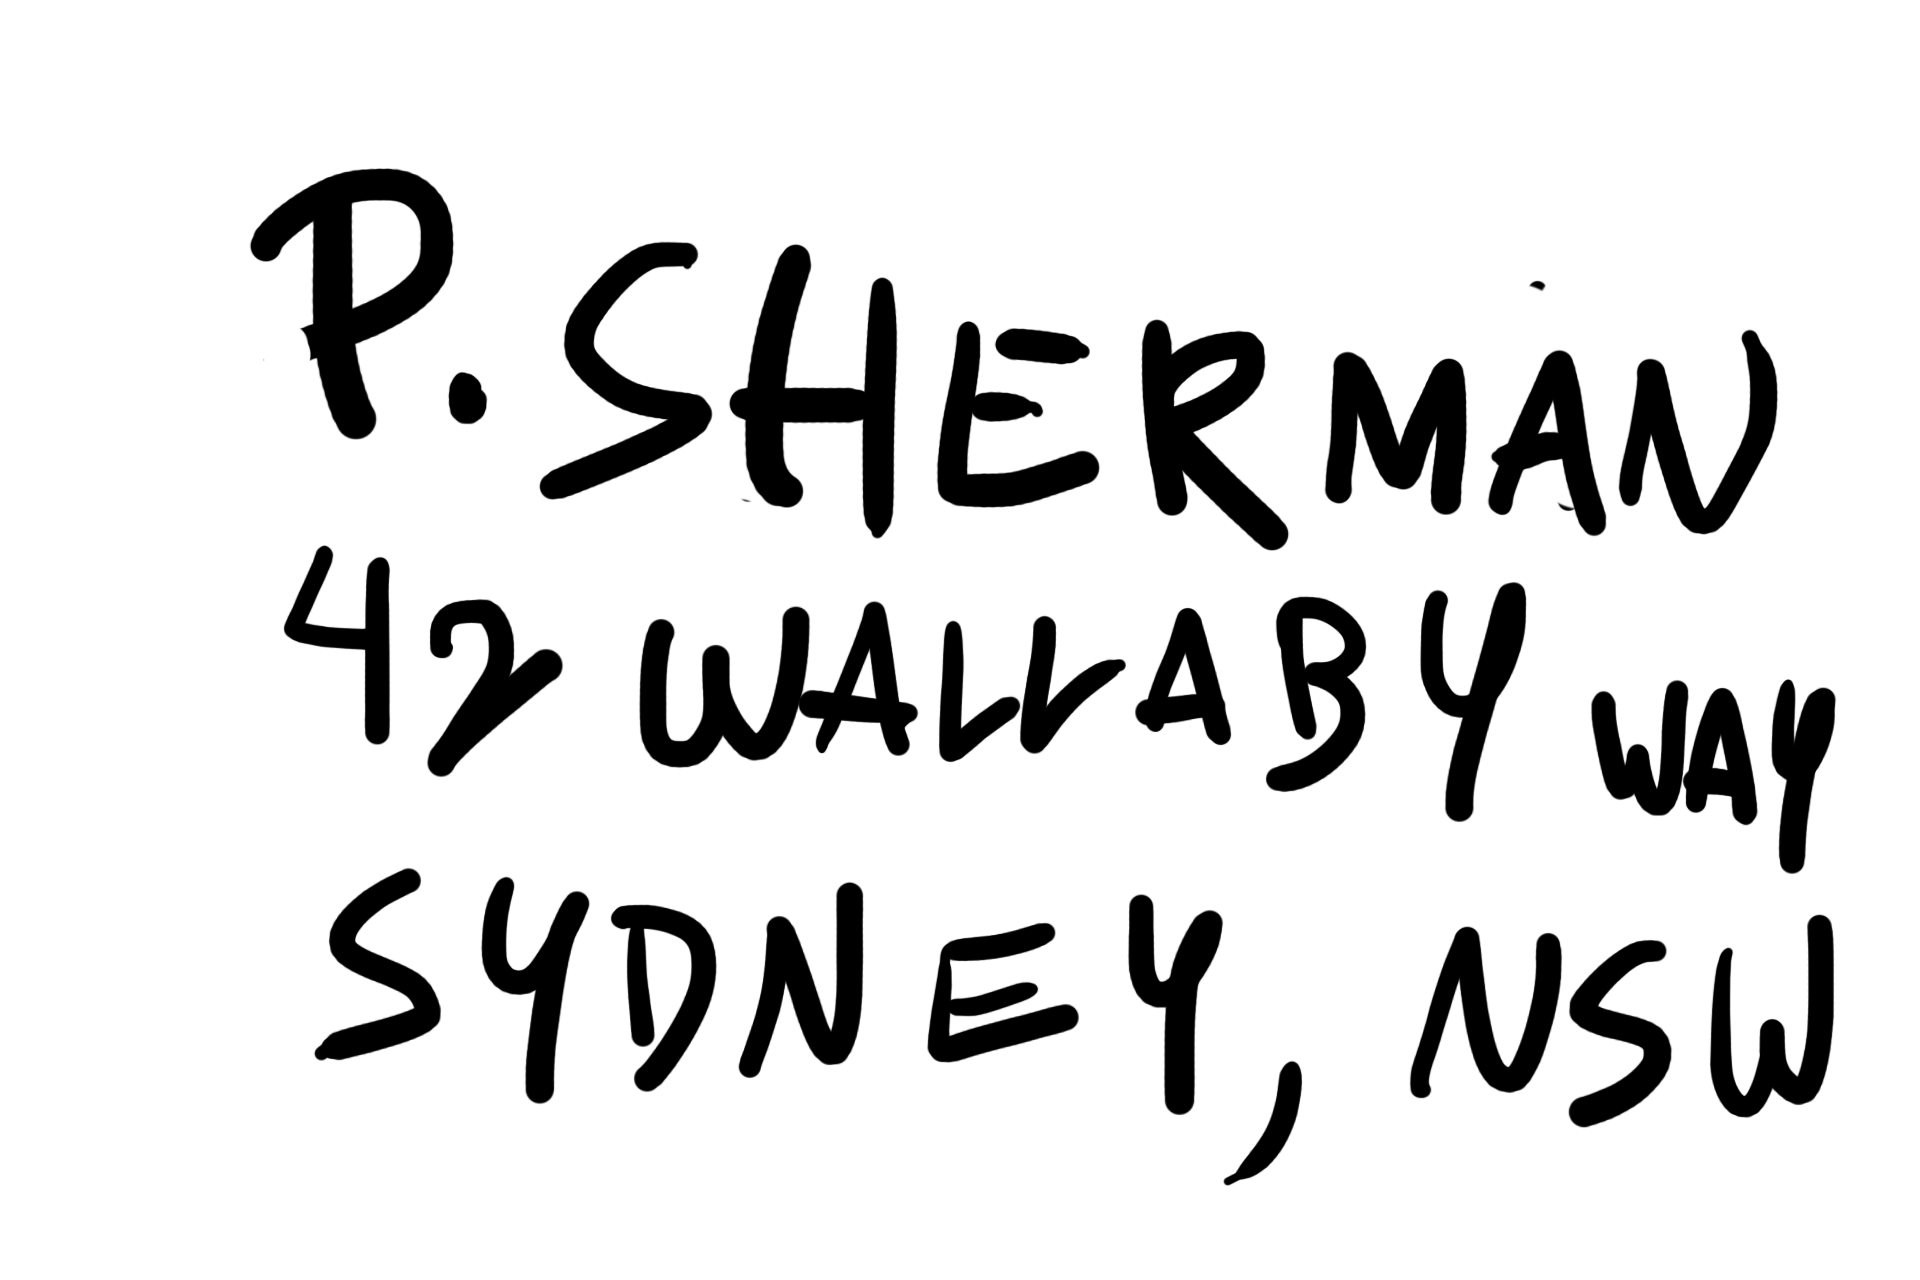 P. SHERMAN
42 WALLABY WAY
SYDNEY, NSW